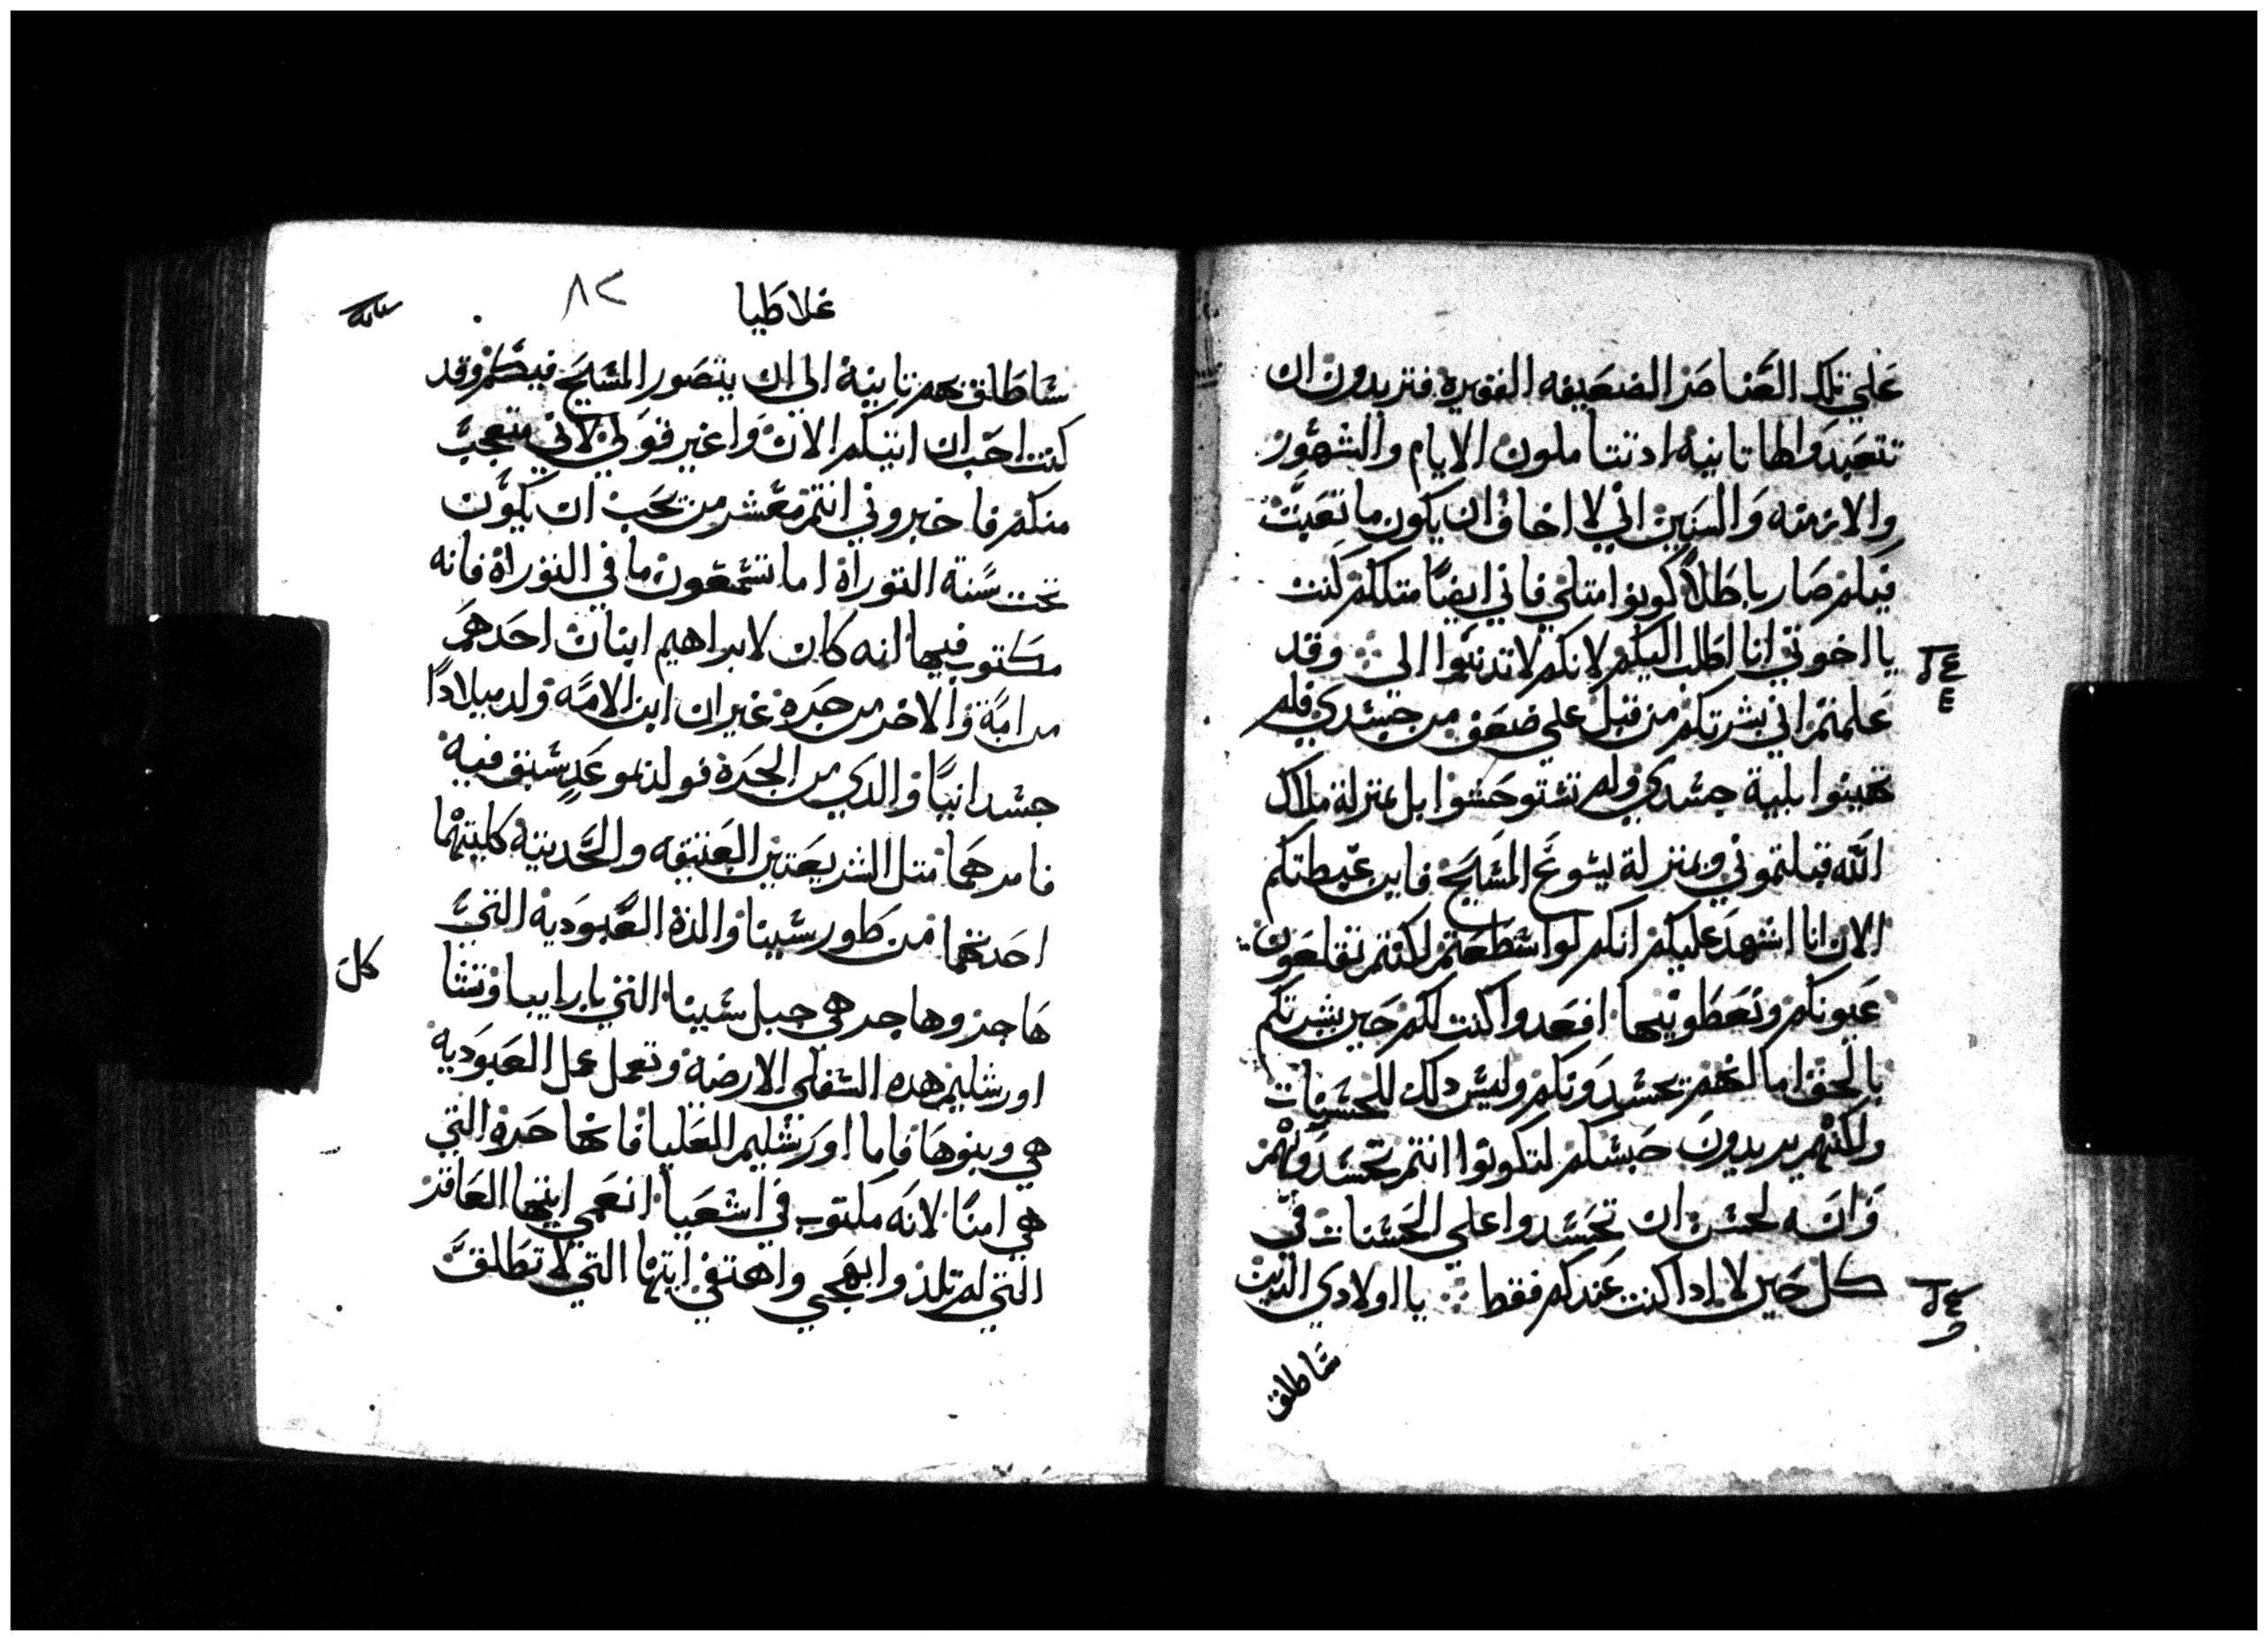 علي تلك العناصر الضعيفه الفقيره فتريدون ان
تتعبدوا لها تانيه اد تتاملون الايام والشهور
والازمنه والسنين اني لا اخاف ان يكون ما تعبت
فيكم صار باطلاً كونوا متلي فاني ايضاً متلكم كنت
يا اخوتي انا اطلب اليكم لانكم لا تدنبوا الي وقد
علمتم اني بشرتكم من قبل علي ضعف من جسدي فلم
تهينوا بلية جسدي ولم تستوحشوا بل بمنزلة ملاك
الله قبلتموني وبمنزلة يسوع المسيح فاين غبطتكم
الان انا اشهد عليكم انكم لو استطعتم لكنتم تقلعون
عيونكم وتعطونيها افعدوا كنت لكم حين بشرتكم
بالحق اما انهم يحسدونكم وليس دلك للحسنات
ولكنهم يريدون حبسكم لتكونوا انتم تحسدونهم
وانه لحسن ان تحسدوا علي الحسنات في
كل حين لا ادا كنت عندكم فقط يا اولادي الدين
شاطلق
غلاطيا
٨٢
شاطلق بهم تانية الي ان يتصور المسيح فيكم وقد
كنت احب ان اتيكم الان واغير قولي لاني متعجب
منكم فاخبروني انتم معشر من يحب ان يكون
تحت سنة التوراة اما تسمعون ما في التوراة فانه
مكتوب فيها انه كان لابراهيم ابنان احدهم
من امة والاخر من حرة غير ان ابن الامه ولد ميلاداً
جسدانياً والدي من الحرة فولد بموعد سبق فيه
فامرهما متل الشريعتين العتيقه والحديته كليتهما
احدتهما من طور سينا والدة العبودية التي
هاجر وهاجر هي جبل سينا التي بارابيا وتشا
كل
اورشليم هده السفلي الارضه وتعمل عمل العبودية
هي وبنوها فاما اورشليم العليا فانها حرة التي
هي امنا لانه مكتوب في اشعيا انعمي ايتها العاقر
التي لم تلد وابهجي واهتفي ايتها التي لا تطلق